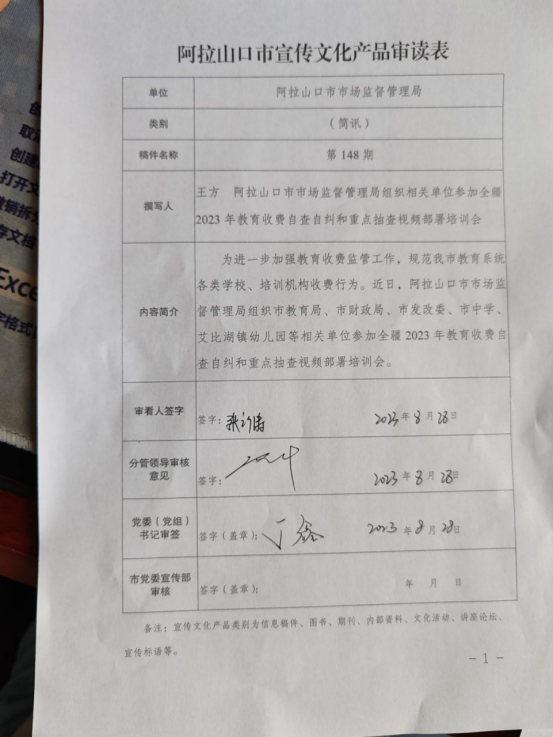 阿拉山口市宣传文化产品审读表
单位 阿拉山口市市场监督管理局
类别 （简讯）
稿件名称 第 148 期
撰写人 王方 阿拉山口市市场监督管理局组织相关单位参加全疆
2023 年教育收费自查自纠和重点抽查视频部署培训会
内容简介
为进一步加强教育收费监管工作，规范我市教育系统
各类学校、培训机构收费行为。近日，阿拉山口市市场监
督管理局组织市教育局、市财政局、市发改委、市中学、
艾比湖镇幼儿园等相关单位参加全疆 2023 年教育收费自
查自纠和重点抽查视频部署培训会。
审看人签字 签字： 2023 年 8 月 28 日
分管领导审核
意见 签字： 2023 年 8 月 28 日
党委（党组）
书记审签 签字（盖章）：丁鑫 2023 年 8 月 28 日
市党委宣传部
审核 签字（盖章）： 年 月 日
备注：宣传文化产品类别为信息稿件、图书、期刊、内部资料、文化活动、讲座论坛、
宣传标语等。
- 1 -
打开文
Exce